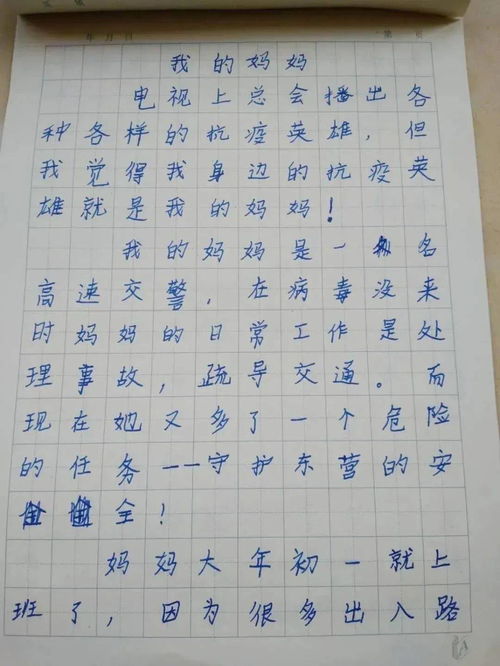 年 月 日 第 页
我的妈妈
电视上总会播出各
种各样的抗疫英雄，但
我觉得我身边的抗疫英
雄就是我的妈妈！
我的妈妈是一名
高速交警，在病毒没来
时妈妈的日常工作是处
理事故，疏导交通。而
现在她又多了一个危险
的任务——守护东营的安
全！
妈妈大年初一就上
班了，因为很多出入路